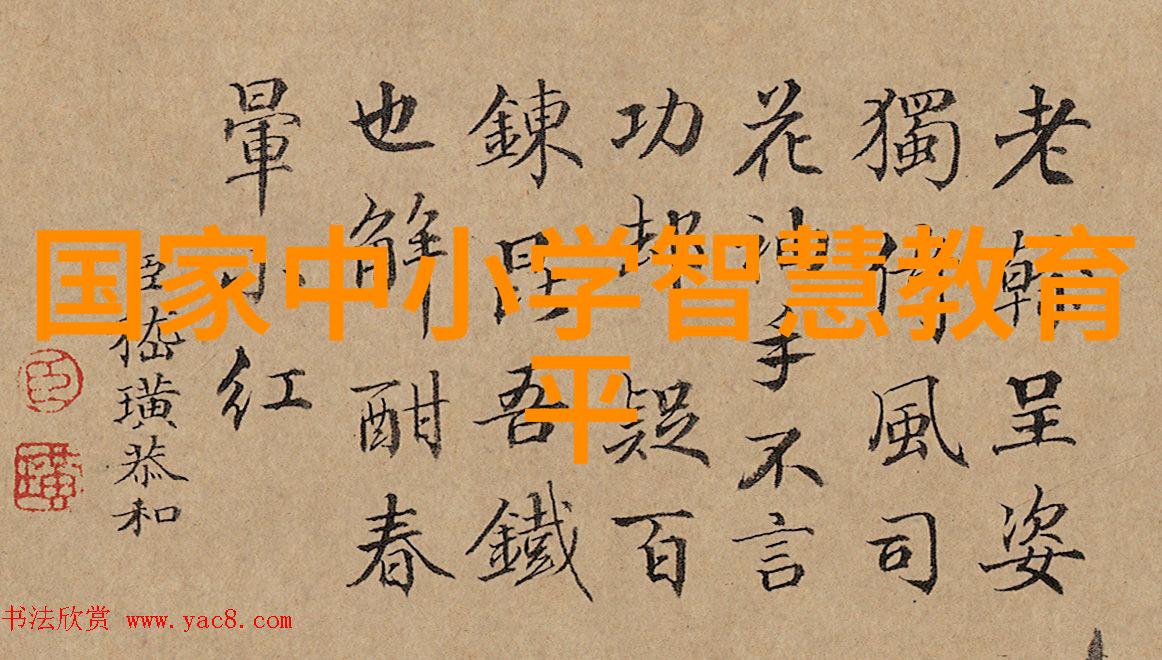 国家中小学智慧教育
平
老呈姿
獨風司
花神手不言
功疑百
鍊昆吾鐵
也解酣春
暈紅
臣嵇璜恭和
臣
璜
书法欣赏 www.yac8.com